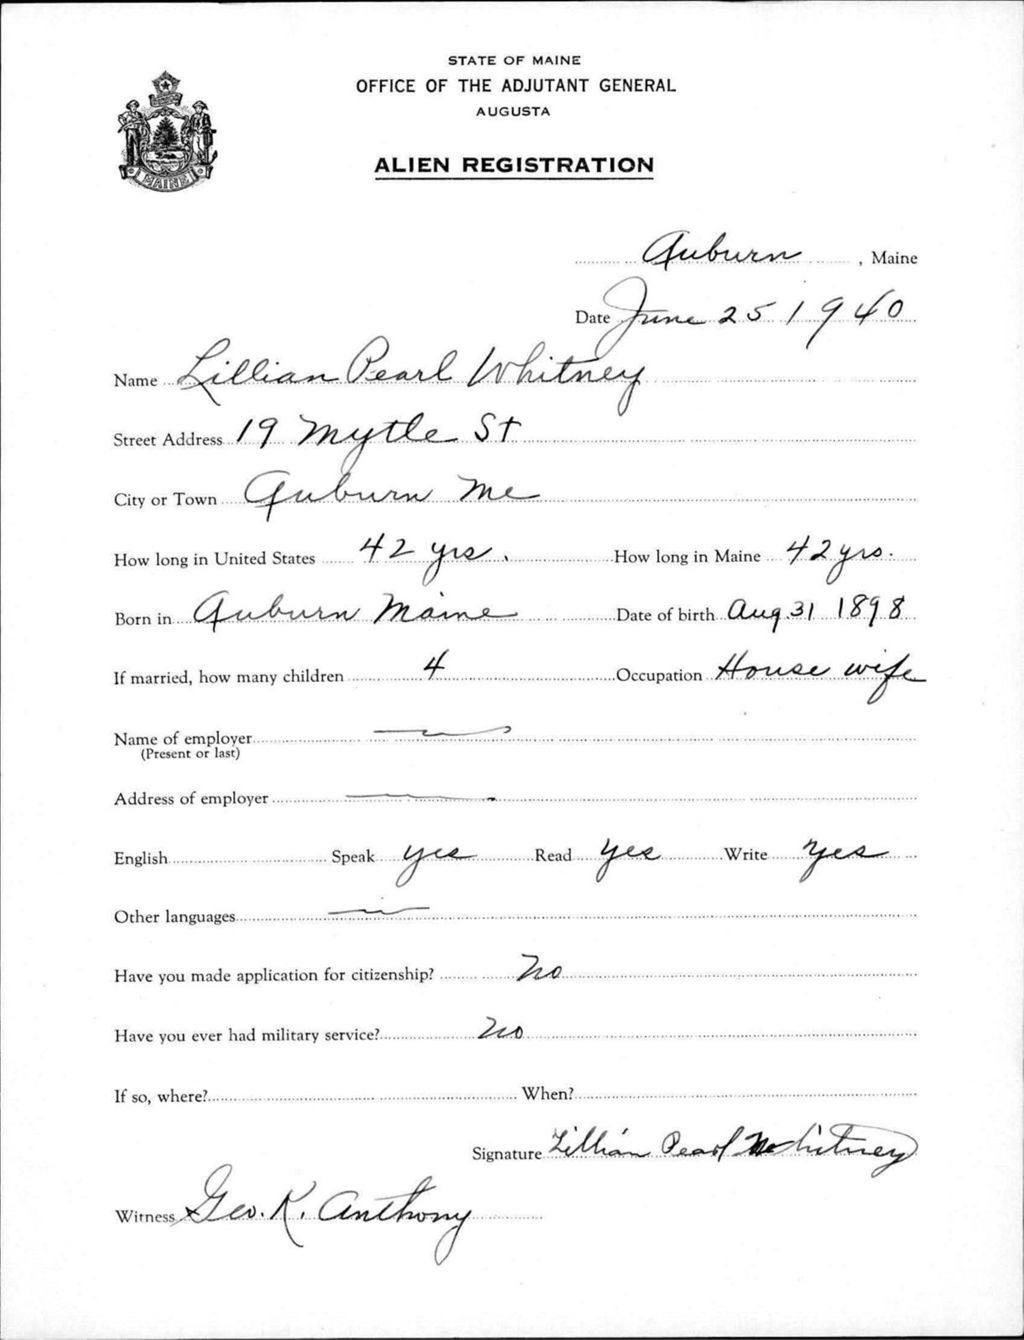 STATE OF MAINE
OFFICE OF THE ADJUTANT GENERAL
AUGUSTA
MAINE
ALIEN REGISTRATION
Auburn, Maine
Date June 25 1940
Name Lillian Pearl Whitney
Street Address 19 Mytle St
City or Town Auburn Me
How long in United States 42 yrs. How long in Maine 42 yrs.
Born in Auburn Maine Date of birth Aug 31 1898
If married, how many children 4 Occupation House wife
Name of employer
(Present or last)
Address of employer
English Speak yes Read yes Write Yes
Other languages
Have you made application for citizenship? No
Have you ever had military service? No
If so, where? When?
Signature Lillian Pearl Whitney
Witness Geo. K. Anthony